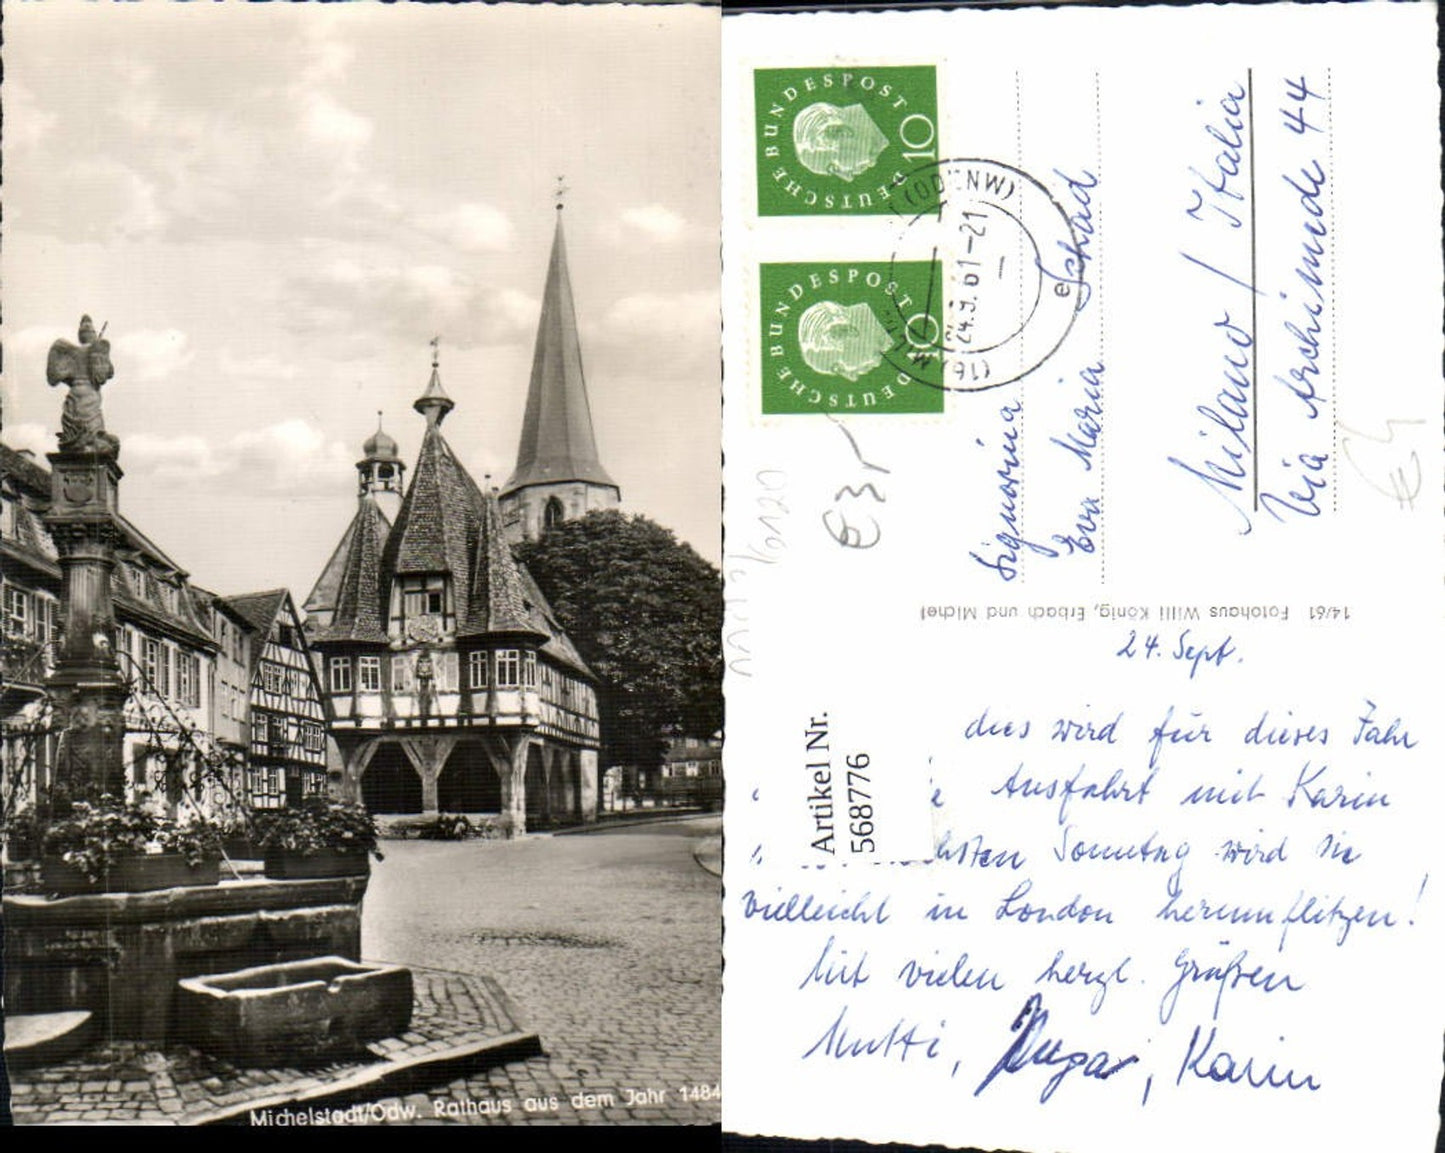 Michelstadt/Odw. Rathaus aus dem Jahr 1484
DEUTSCHE BUNDESPOST
10
DEUTSCHE BUNDESPOST
10
(16) MI (ODENW)
24.9.61-21
e
Signorina
Eva Maria Schad
Milano / Italia
Via Archimede 44
€ 3,-
14/61 Fotohaus Willi König, Erbach und Michel
Artikel Nr.
568776
24. Sept.
dies wird für dieses Jahr
Ausfahrt mit Karin
hsten Sonntag wird sie
vielleicht in London herumflitzen!
Mit vielen herzl. Grüßen
Mutti, Karin